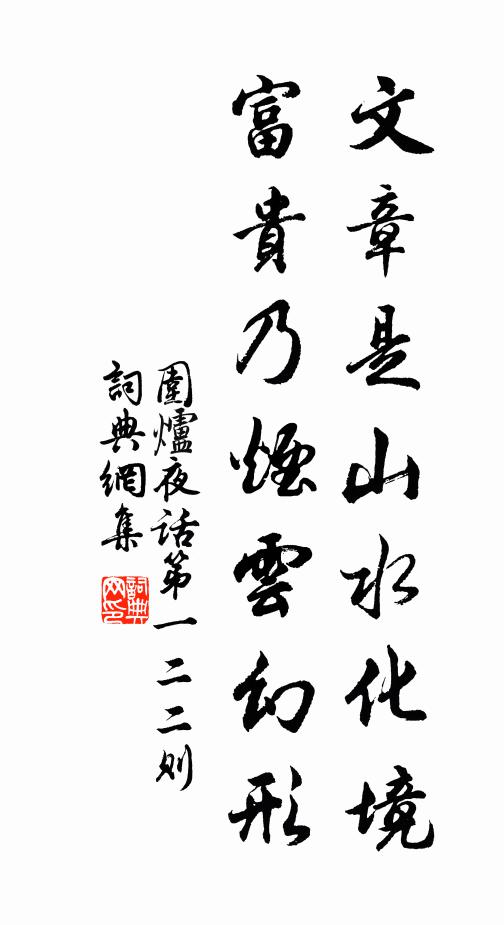 文章是山水化境
富貴乃煙雲幻形
圍爐夜话第一二二则
詞典網集
詞典网印